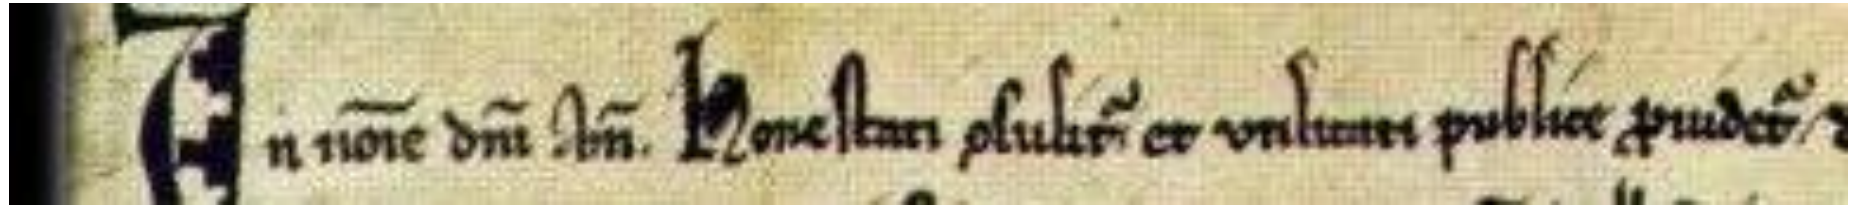 In no̅ie dn̅i Am̅. Honestati ꝯsulit᷑ et utilitati publice ꝓuidet᷑